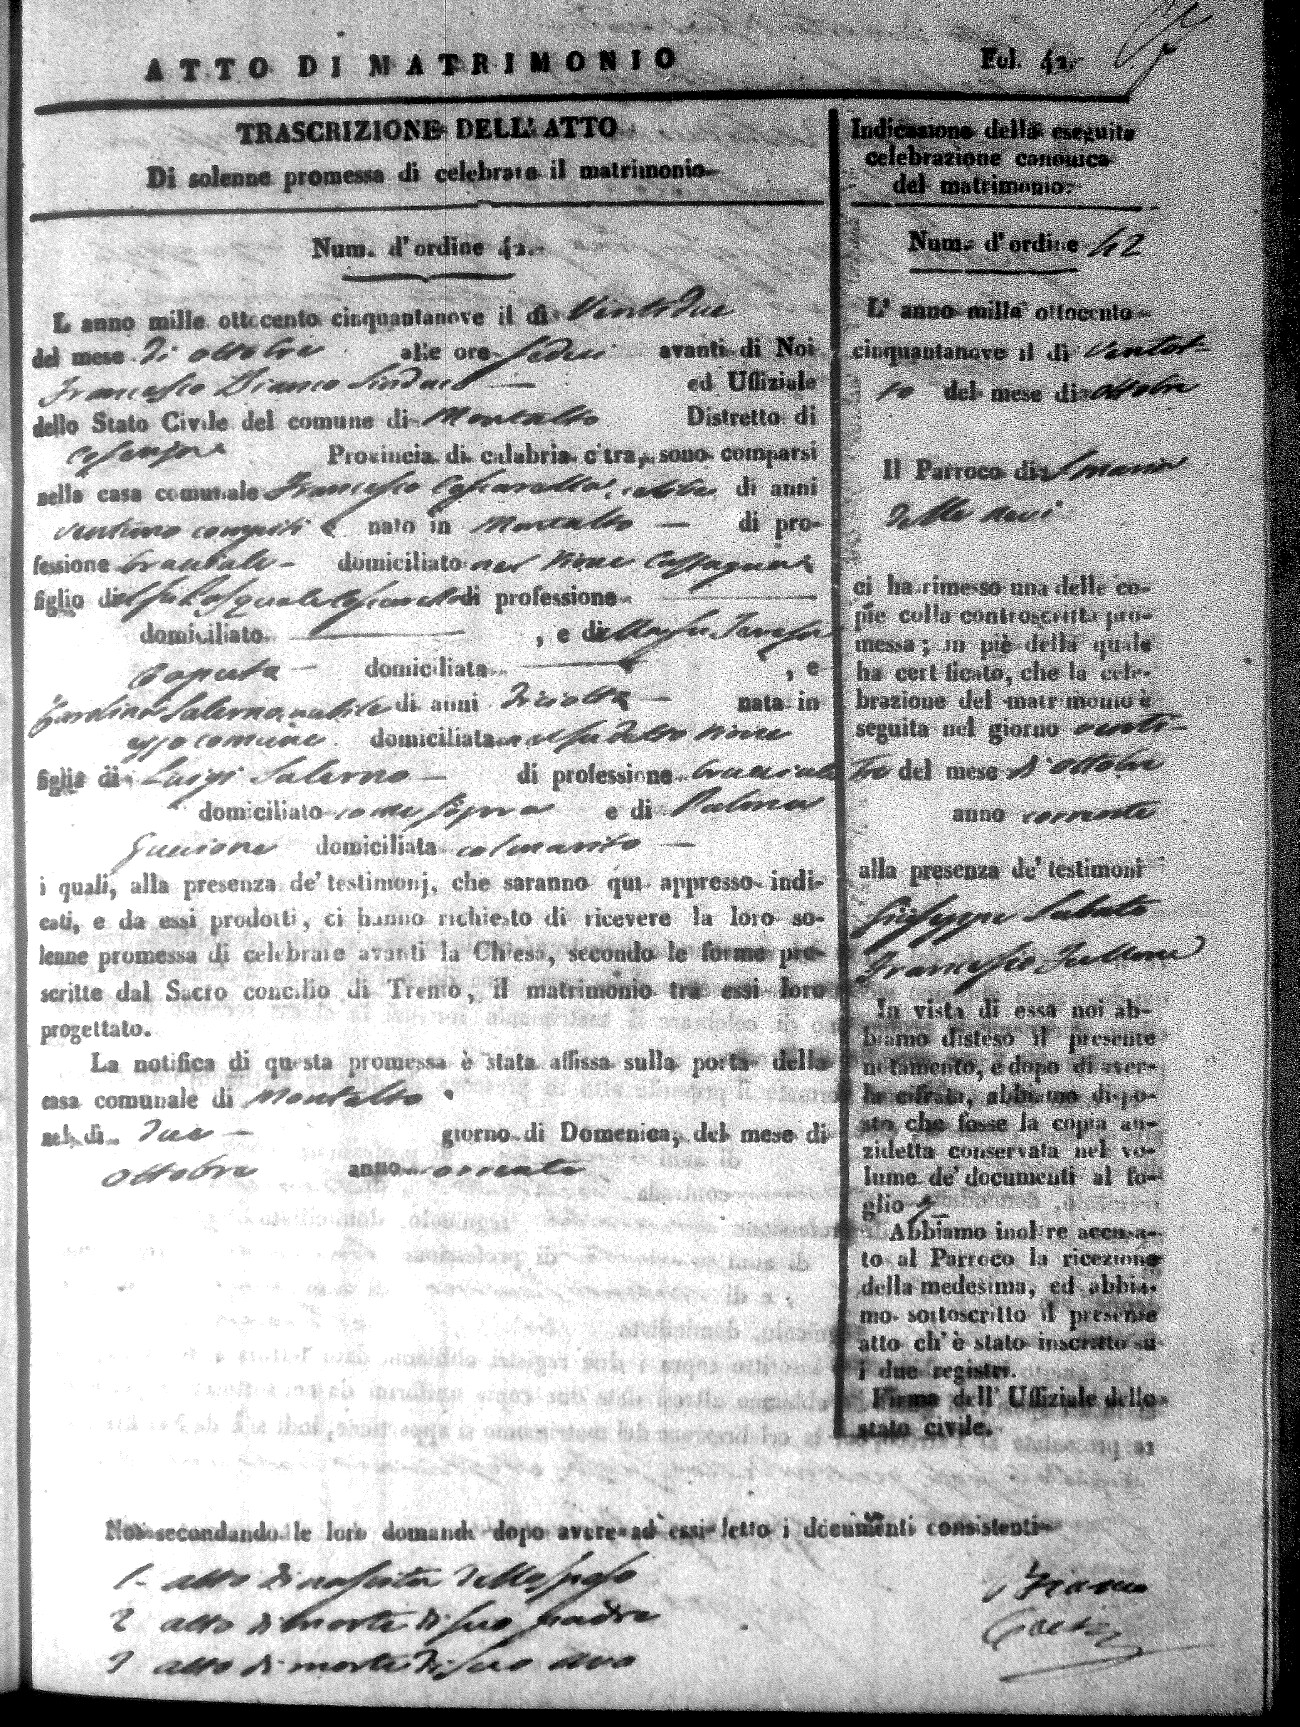 ATTO DI MATRIMONIO
Fol. 42.
TRASCRIZIONE DELL' ATTO
Di solenne promessa di celebrare il matrimonio
Num. d' ordine 42.
L' anno mille ottocento cinquantanove il dì Ventidue
del mese di ottobre alle ore sedici avanti di Noi
Francesco Bianco Sindaco ed Uffiziale
dello Stato Civile del comune di Montalto Distretto di
Cosenza Provincia di calabria citra, sono comparsi
nella casa comunale Francesco Coscarella, celibe di anni
ventuno compiti nato in Montalto di pro-
fessione bracciale domiciliato nel rione
figlio di Pasquale Coscarella di professione
domiciliato , e di Teresa
Caputa domiciliata , e
Salerno nubile di anni diciotto nata in
esso comune domiciliata detto rione
figlia di Luigi Salerno di professione bracciale
domiciliato come sopra e di Palma
Guccione domiciliata col marito
i quali, alla presenza de' testimonj, che saranno qui appresso indi-
cati, e da essi prodotti, ci hanno richiesto di ricevere la loro so-
lenne promessa di celebrare avanti la Chiesa, secondo le forme pre-
scritte dal Sacro concilio di Trento, il matrimonio tra essi loro
progettato.
La notifica di questa promessa è stata affissa sulla porta della
casa comunale di Montalto
nel dì due giorno di Domenica, del mese di
ottobre anno corrente
Indicazione della eseguita
celebrazione canonica
del matrimonio.
Num. d' ordine 42
L' anno mille ottocento
cinquantanove il dì ventot-
to del mese di ottobre
Il Parroco di S. Maria
della Nevi
ci ha rimesso una delle co-
pie colla controscritta pro-
messa; in piè della quale
ha certificato, che la cele-
brazione del matrimonio è
seguita nel giorno venti-
tre del mese di ottobre
anno corrente
alla presenza de' testimoni
Giuseppe Sabato
Francesco
In vista di essa noi ab-
biamo disteso il presente
notamento, e dopo di aver-
la cifrata, abbiamo dispo-
sto che fosse la copia an-
zidetta conservata nel vo-
lume de' documenti al fo-
glio
Abbiamo inoltre accusa-
to al Parroco la ricezione
della medesima, ed abbia-
mo sottoscritto il presente
atto ch' è stato inscritto su
i due registri.
Firma dell' Uffiziale dello
stato civile.
Noi secondando le loro domande dopo avere ad essi letto i documenti consistenti
1 atto di nascita dello sposo
2 atto di morte di suo padre
3 atto di morte di suo avo
Bianco